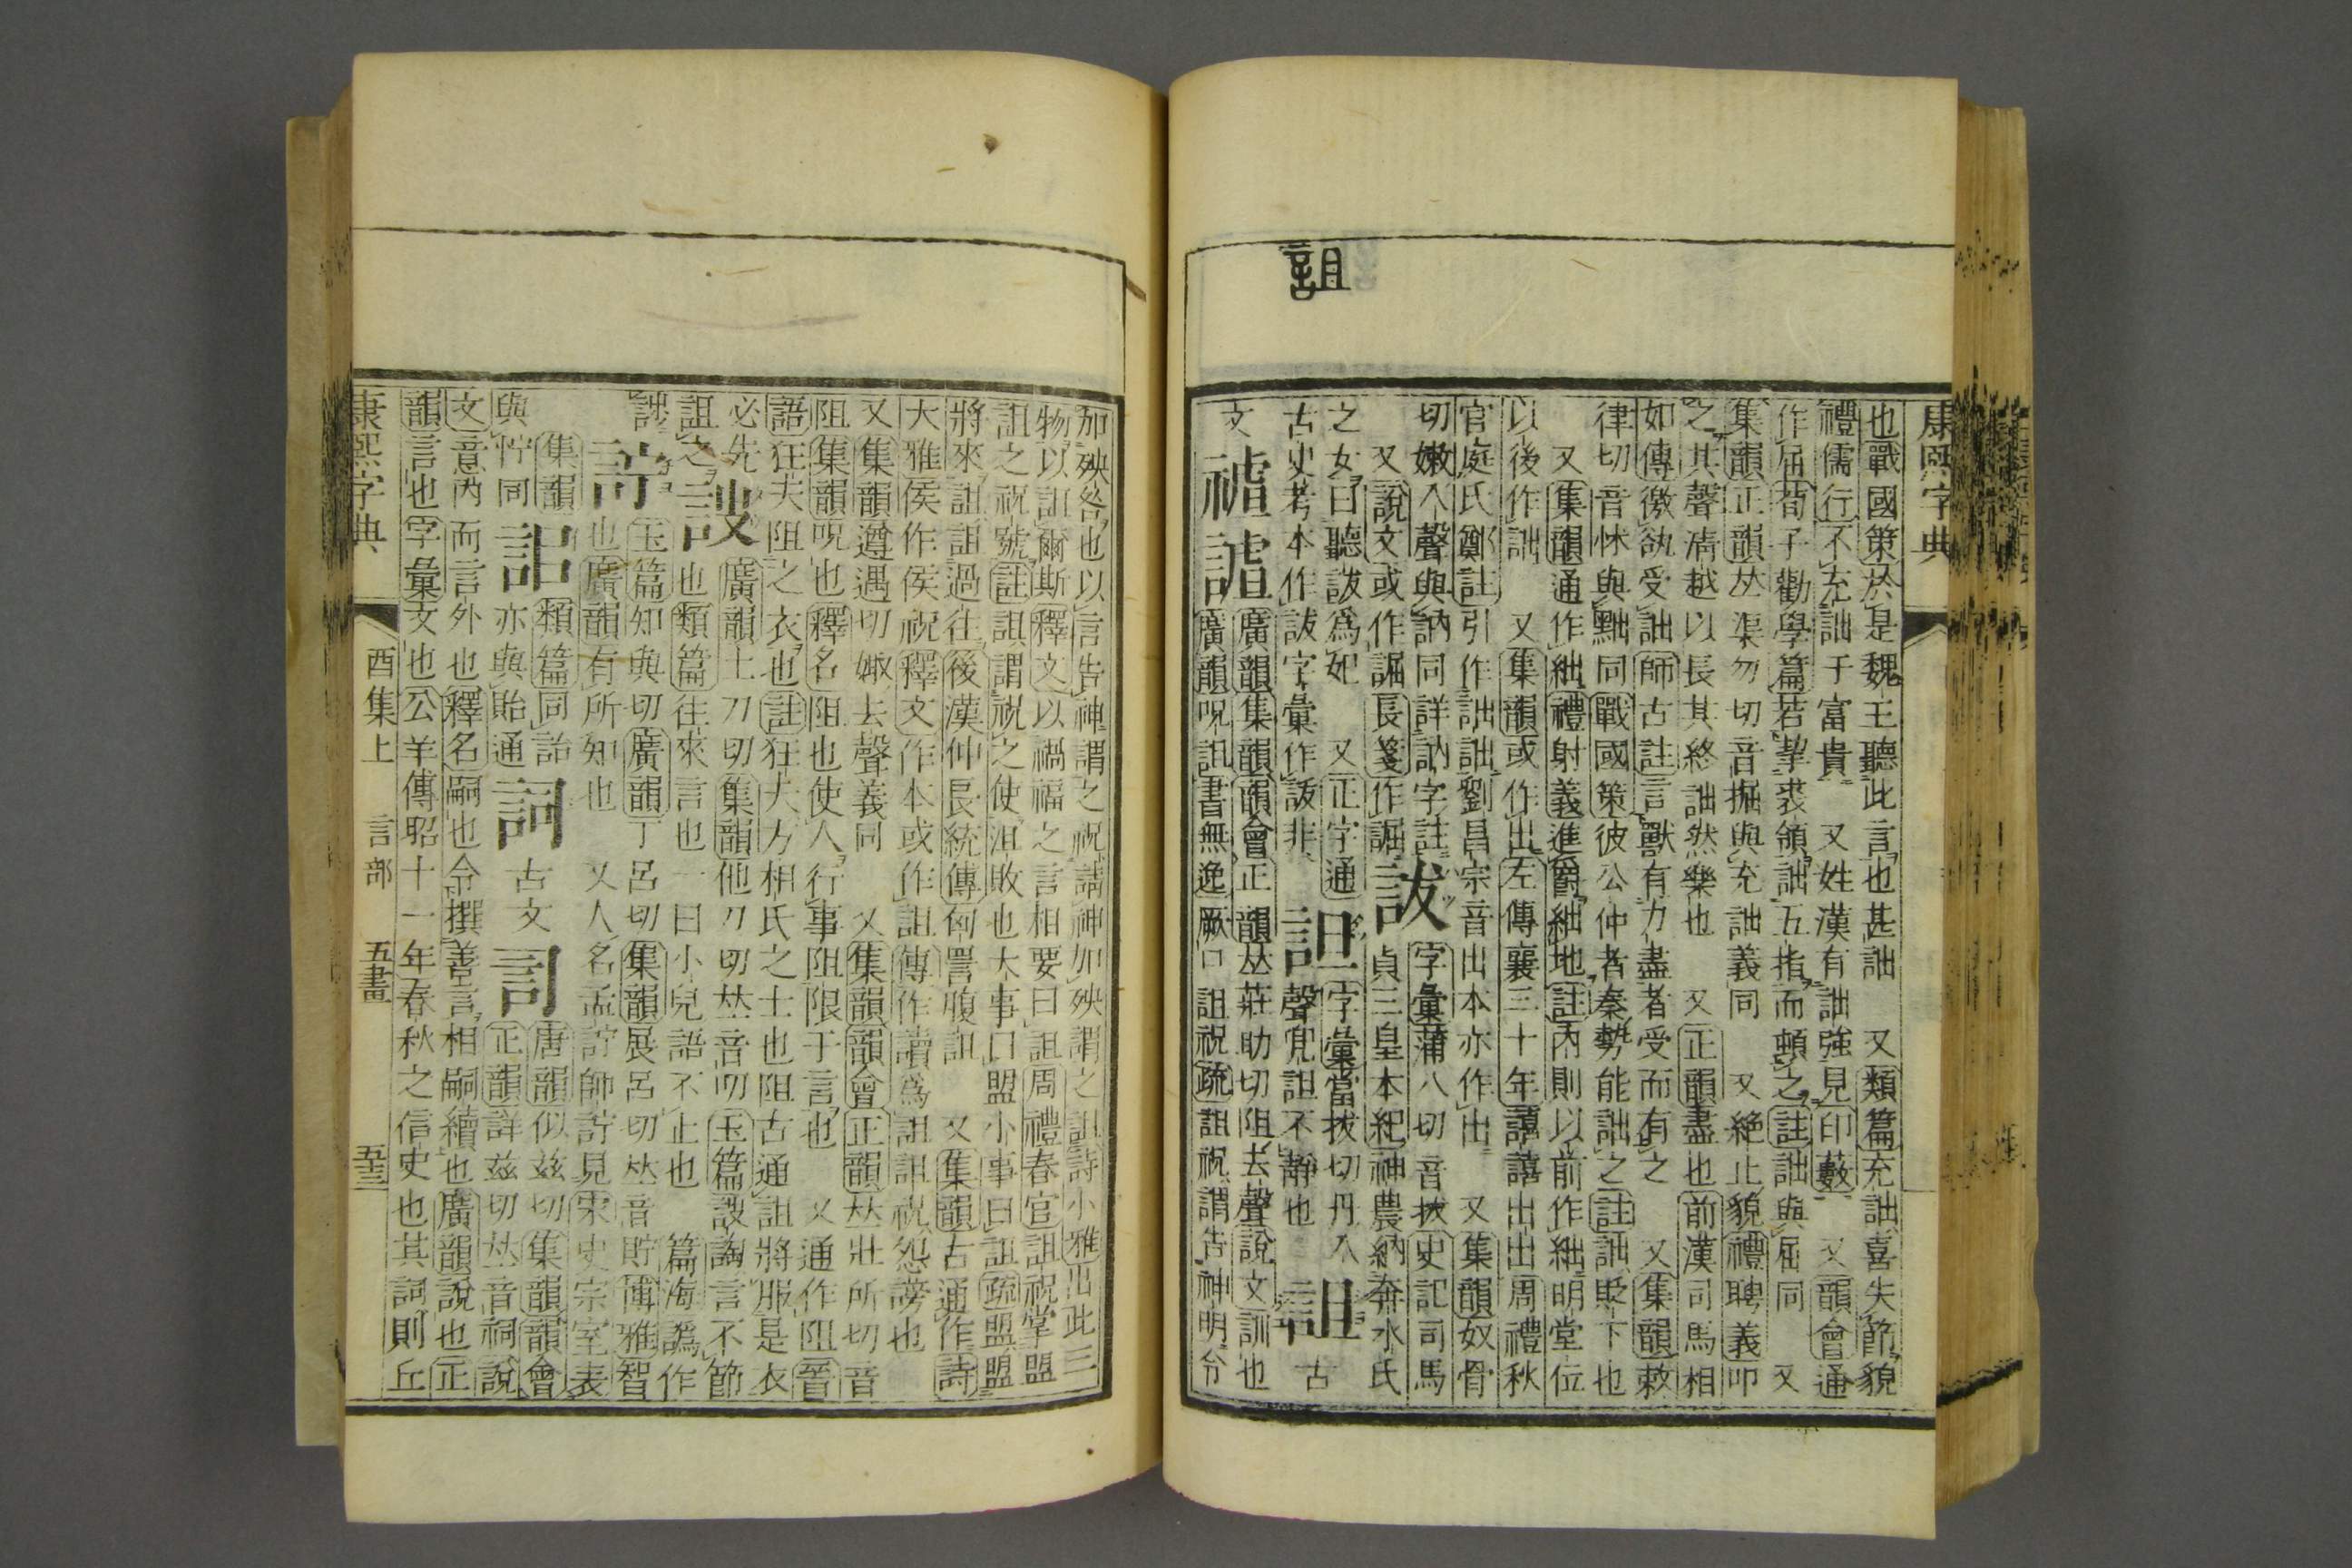 詛
康熙字典
也戰國策於是魏王聽此言也甚詘　又類篇充詘喜失節貌
禮儒行不充詘于富貴　又姓漢有詘強見印藪　又韻會通
作屈荀子勸學篇若挈裘領詘五指而頓之註詘與屈同　又
集韻正韻𠀤渠勿切音掘與充詘義同　又絕止貌禮聘義叩
之其聲淸越以長其終詘然樂也　又正韻盡也前漢司馬相
如傳徼𠊬受詘師古註言獸有力盡者受而有之　又集韻敕
律切音怵與黜同戰國策彼公仲者秦勢能詘之註詘貶下也
又集韻通作絀禮射義進爵絀地註內則以前作絀明堂位
以後作詘　又集韻或作出左傳襄三十年譆譆出出周禮秋
官庭氏鄭註引作詘詘劉昌宗音出本亦作出　又集韻奴骨
切嫩入聲與訥同詳訥字註
又說文或作𧧸長箋作𧧸
詙
字彙蒲八切音拔史記司馬
貞三皇本紀神農納奔水氏
之女曰聽詙爲妃　又正字通
古史考本作詙字彙作詙非
䛳
字彙當拔切丹入
聲𧦧䛳不靜也
詛
古
文
𥛜
謯
廣韻集韻韻會正韻𠀤莊助切阻去聲說文訓也
廣韻呪詛書無逸厥口詛祝疏詛祝謂告神明令
加殃咎也以言告神謂之祝請神加殃謂之詛詩小雅出此三
物以詛爾斯釋文以禍福之言相要曰詛周禮春官詛祝掌盟
詛之祝號註詛謂祝之使沮敗也大事曰盟小事曰詛疏盟盟
將來詛詛過往後漢仲長統傳刳詈腹詛　又集韻古通作詩
大雅侯作侯祝釋文作本或作詛傳作讀爲詛詛祝怨謗也
又集韻遵遇切娵去聲義同　又集韻韻會正韻𠀤壯所切音
阻集韻呪也釋名阻也使人行事阻限于言也　又通作阻晉
語狂夫阻之衣也註狂夫方相氏之士也阻古通詛將服是衣
必先
詛之
䛬
廣韻土刀切集韻他刀切𠀤音叨玉篇䛬詾言不節
也類篇往來言也一曰小兒語不止也　篇海譌作
詜
詝
玉篇知與切廣韻丁呂切集韻展呂切𠀤音貯博雅智
也廣韻有所知也　又人名孟詝師詝見宋史宗室表
集韻
與㤖同
詔
類篇同詒
亦與貽通
詞
古文
䛐
唐韻似玆切集韻韻會
正韻詳玆切𠀤音祠說
文意內而言外也釋名嗣也令撰善言相嗣續也廣韻說也正
韻言也字彙文也公羊傳昭十一年春秋之信史也其詞則丘
康熙字典
酉集上　言部　五畫　五三